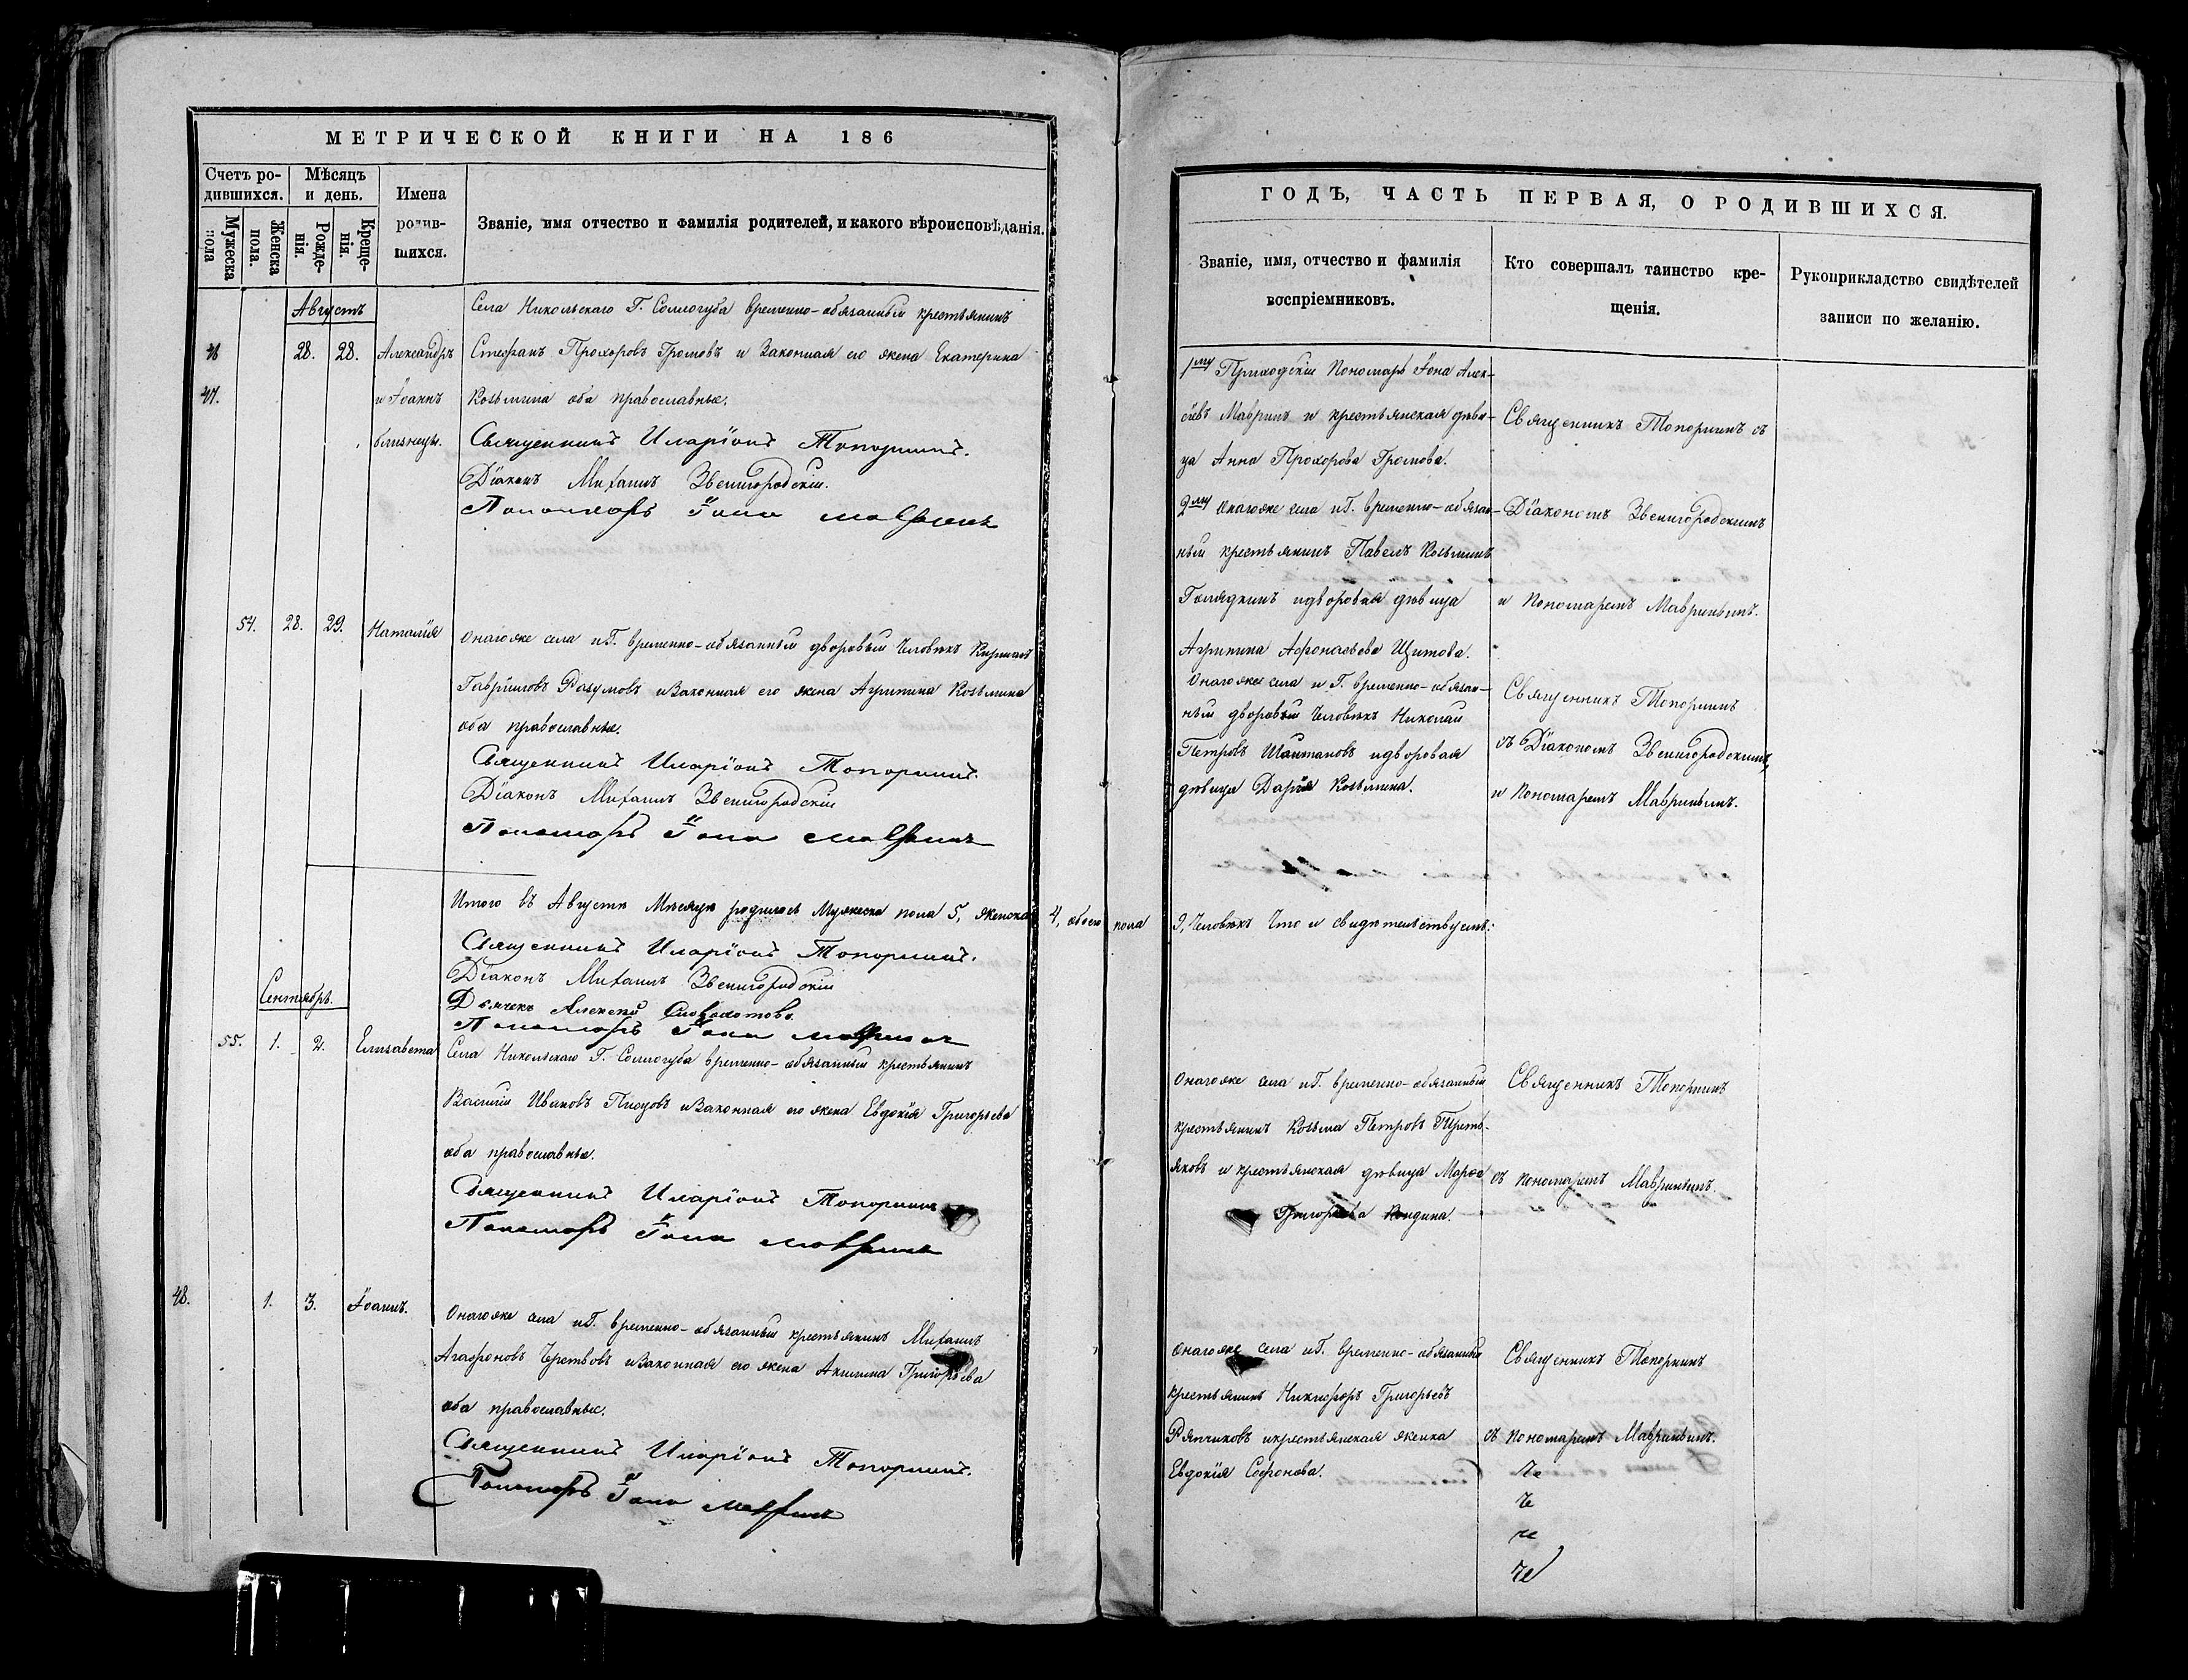 МЕТРИЧЕСКОЙ КНИГИ НА 186
Счетъ ро-
дившихся.
Мѣсяцъ
и день.
Мужеска
пола
Женска
пола.
Рожде-
нія.
Креще-
нія.
Имена
родив-
шихся.
Званіе, имя отчество и фамилія родителей, и какого вѣроисповѣданія.
Августъ
Села Никольскаго Г. Соллогуба временно-обязанный крестьянинъ
46 28. 28. Александръ Стефанъ Прохоровъ Громовъ и законная его жена Екатерина
47. и Іоаннъ Козьмина оба православные.
близнецы. Священникъ Иларіонъ Топорнинъ.
Діаконъ Михаилъ Звенигородскій.
Пономарь Іона Мавринъ
54. 28. 29. Наталія Онагоже села и Г. временно-обязанный дворовый человѣкъ Кириллъ
Гавріиловъ Разумовъ и законная его жена Агрипина Козьмина
оба православные.
Священникъ Иларіонъ Топорнинъ.
Діаконъ Михаилъ Звенигородскій
Пономарь Іона Мавринъ
Итого въ Августѣ Мѣсяцѣ родилось Мужеска пола 5, женска 4, обоего пола 9, человѣкъ Что и свидѣтельствуемъ:
Священникъ Иларіонъ Топорнинъ.
Діаконъ Михаилъ Звенигородскій
Дьячекъ Алексей
Пономарь Іона Мавринъ
Сентябрь.
55. 1. 2. Елизавета Села Никольскаго Г. Соллогуба временно-обязанный крестьянинъ
Василій Ивановъ и законная его жена Евдокія Григорьева
оба православные.
Священникъ Иларіонъ Топорнинъ
Пономарь Іона Мавринъ
48. 1. 3. Іоаннъ. Онагоже села и Г. временно-обязанный крестьянинъ Михаилъ
Агафоновъ и законная его жена Акилина Григорьева
оба православные.
Священникъ Иларіонъ Топорнинъ.
Пономарь Іона Мавринъ
ГОДЪ, ЧАСТЬ ПЕРВАЯ, О РОДИВШИХСЯ.
Званіе, имя, отчество и фамилія
воспріемниковъ.
Кто совершалъ таинство кре-
щенія.
Рукоприкладство свидѣтелей
записи по желанію.
1му Приходскій Пономарь Іона Алек-
сіевъ Мавринъ и крестьянская дѣви-
ца Анна Прохорова Громова.
2му Онагоже села и Г. временно-обязан-
ный крестьянинъ Павелъ Козьминъ
Голядкинъ и дворовая дѣвица
Агрипина Афонасьева Щитова.
Священникъ Топорнинъ съ
Діакономъ Звенигородскимъ
и Пономаремъ Мавринымъ.
Онагоже села и Г. временно-обязан-
ный дворовый человѣкъ Николай
Петровъ Шантановъ и дворовая
дѣвица Дарія Козьмина.
Священникъ Топорнинъ
съ Діакономъ Звенигородскимъ,
и Пономаремъ Мавринымъ.
Онагоже села и Г. временно-обязанный
крестьянинъ Козьма Петровъ Треть-
яковъ и крестьянская дѣвица Марѳа
Григорьева
Священникъ Топорнинъ
съ Пономаремъ Мавринымъ.
Онагоже села и Г. временно-обязанный
крестьянинъ Никифоръ Григорьевъ
Ряпчиковъ и крестьянская женка
Евдокія Софонова.
Священникъ Топорнинъ
съ Пономаремъ Мавринымъ.